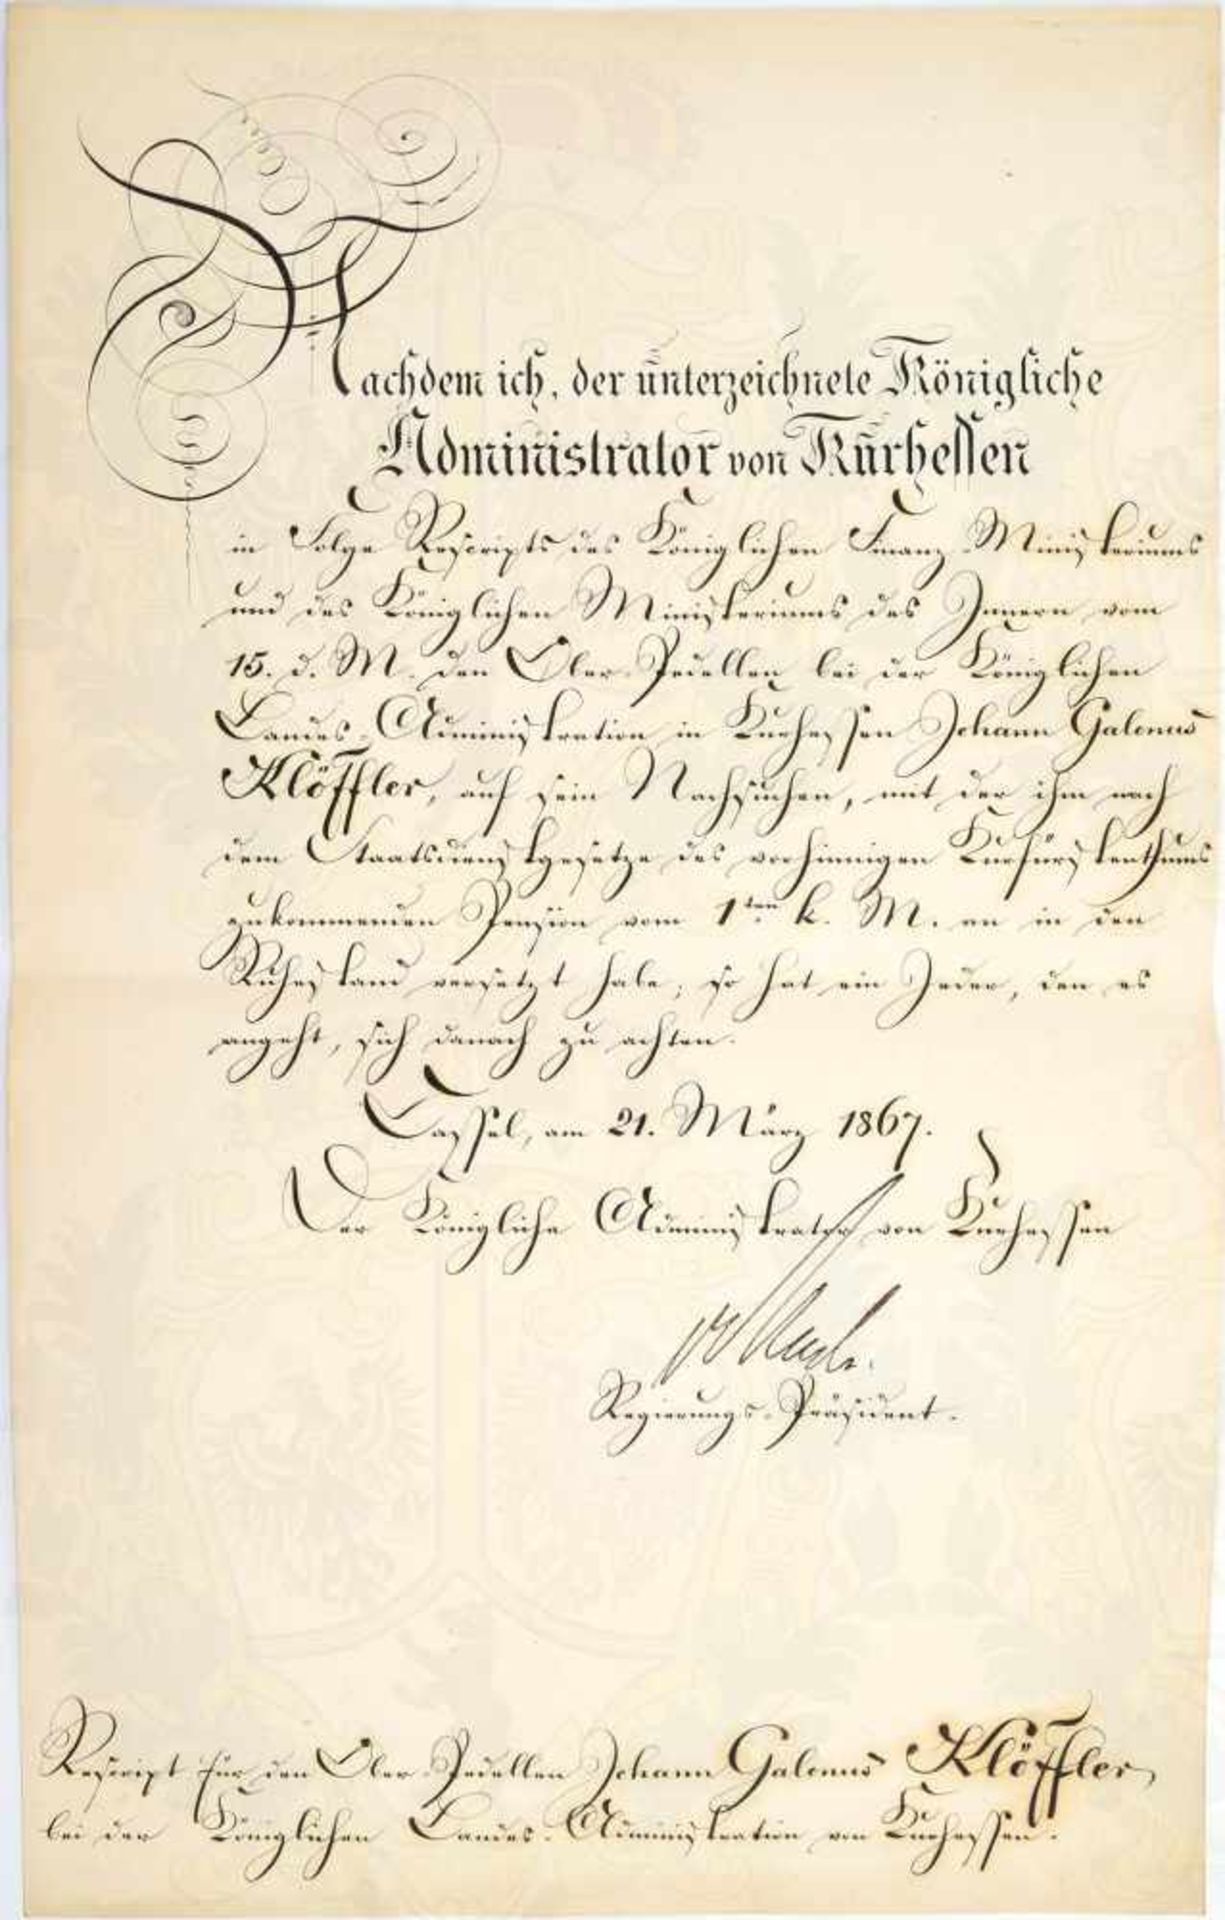 Nachdem ich, der unterzeichnete Königliche
Administrator von Kurhessen
in Folge Rescripts des Königlichen Finanz-Ministeriums
und des Königlichen Ministeriums des Innern vom
15. d. M. den Ober-Pedellen bei der Königlichen
Landes-Administration in Kurhessen Johann Galenus
Klöffler, auf sein Nachsuchen, mit der ihm nach
dem Staatsdienstgesetze des vorhinnigen Kurfürstenthums
zukommenden Pension vom 1ten k. M. an in den
Ruhestand versetzt habe; so hat ein Jeder, den es
angeht, sich danach zu achten.
Cassel, am 21. März 1867.
Der Königliche Administrator von Kurhessen
Regierungs-Präsident.
Rescript für den Ober-Pedellen Johann Galenus Klöffler,
bei der Königlichen Landes-Administration von Kurhessen.